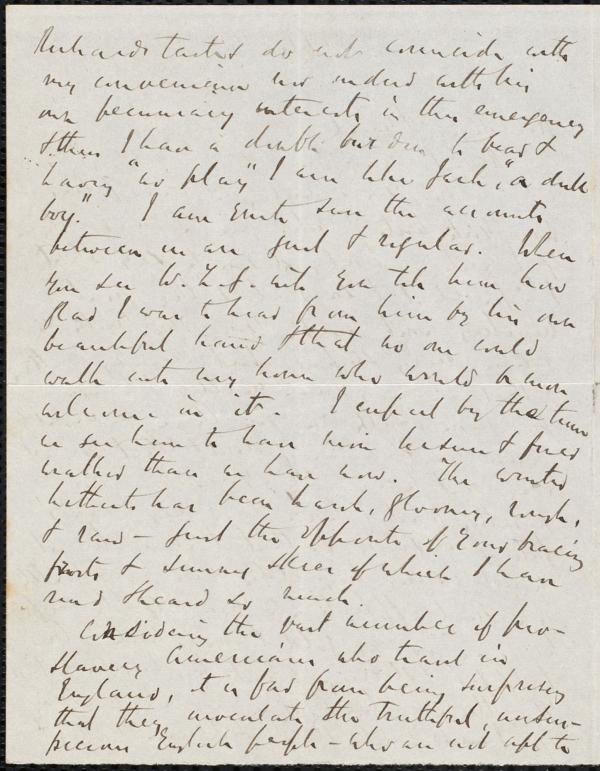 Richard's tastes do not coincide with
my convenience nor indeed with his
own pecuniary interests in this emergency
& thus I have a double burden to bear &
having "no play" I am like Jack, "a dull
boy." I am quite sure the accounts
between us are just & regular. When
you see W. L. G. will you tell him how
glad I was to hear from him by his own
beautiful hand & that no one could
walk into my house who would be more
welcome in it. I expect by the time
we see him to have more leisure & freer
than we have now. The winter
hitherto has been harsh, gloomy, rough,
& raw – just the opposite of your bracing
frosts & sunny skies of which I have
read & heard so much.
Considering the vast number of pro-
slavery Americans who travel in
England, it is far from being surprising
that they inoculate the truthful, unsus-
picious English people – who are not apt to